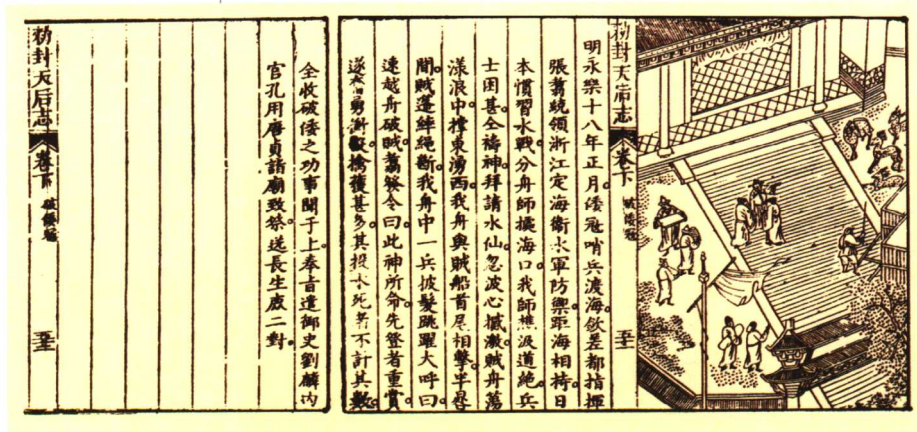 勑封天后志
卷下
破倭寇
明永樂十八年正月倭寇哨兵渡海欽差都指揮
張翥統領浙江定海衛水軍防禦距海相持日
本慣習水戰分舟師據海口我師樵汲道絕兵
士困甚仝禱神拜請水仙忽波心撼激賊舟蕩
漾浪中撑東湧西我舟與賊船首尾相擊半晷
間賊蓬絕斷我舟中一兵披髮跳躍大呼曰
速越舟破賊翥發令曰此神所命先登者重賞
遂奮勇衝殺擒獲甚多其投水死者不計其數
全收破倭之功事聞于上奉旨遣御史劉麟內
官孔用唐貞詣廟致祭送長生鹿二對
勑封天后志
卷下
破倭寇